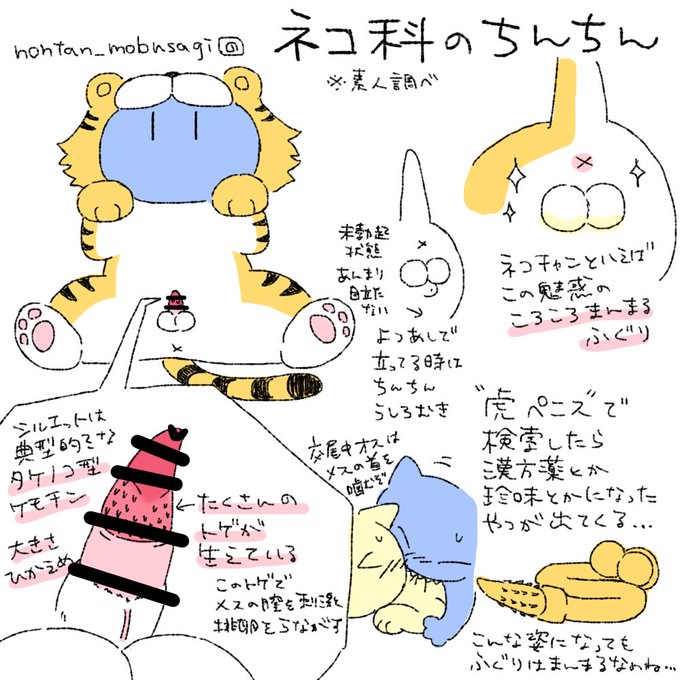 nontan_mobusagi の
ネコ科のちんちん
※素人調べ
未勃起
状態
あんまり
目立た
ない
よつあしで
立ってる時は
ちんちん
うしろむき
ネコチャンといえば
この魅惑の
ころころまんまる
ふぐり
シルエットは
典型的な
タケノコ型
ケモチン
大きさ
ひかえめ
←たくさんの
トゲが
生えている
このトゲで
メスの膣を刺激
排卵をうながす
交尾中オスは
メスの首を
噛むぞ
"虎 ペニス"で
検索したら
漢方薬とか
珍味とかになった
やつが出てくる…
こんな姿になっても
ふぐりはまんまるなのね…